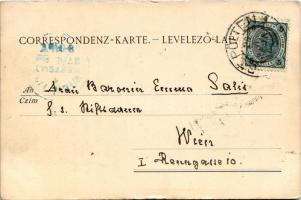 CORRESPONDENZ-KARTE. – LEVELEZŐ-LA
PÖLTEN
An Frau Baronin Emma Salis
Czim
Wien
I Renngasse 10.